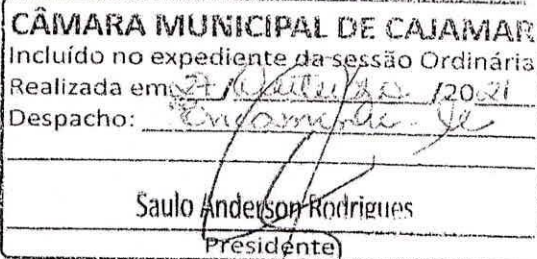 CÂMARA MUNICIPAL DE CAJAMAR
Incluído no expediente da sessão Ordinária
Realizada em 27 / Outubro /2021
Despacho: Encaminhe-se
Saulo Anderson Rodrigues
Presidente